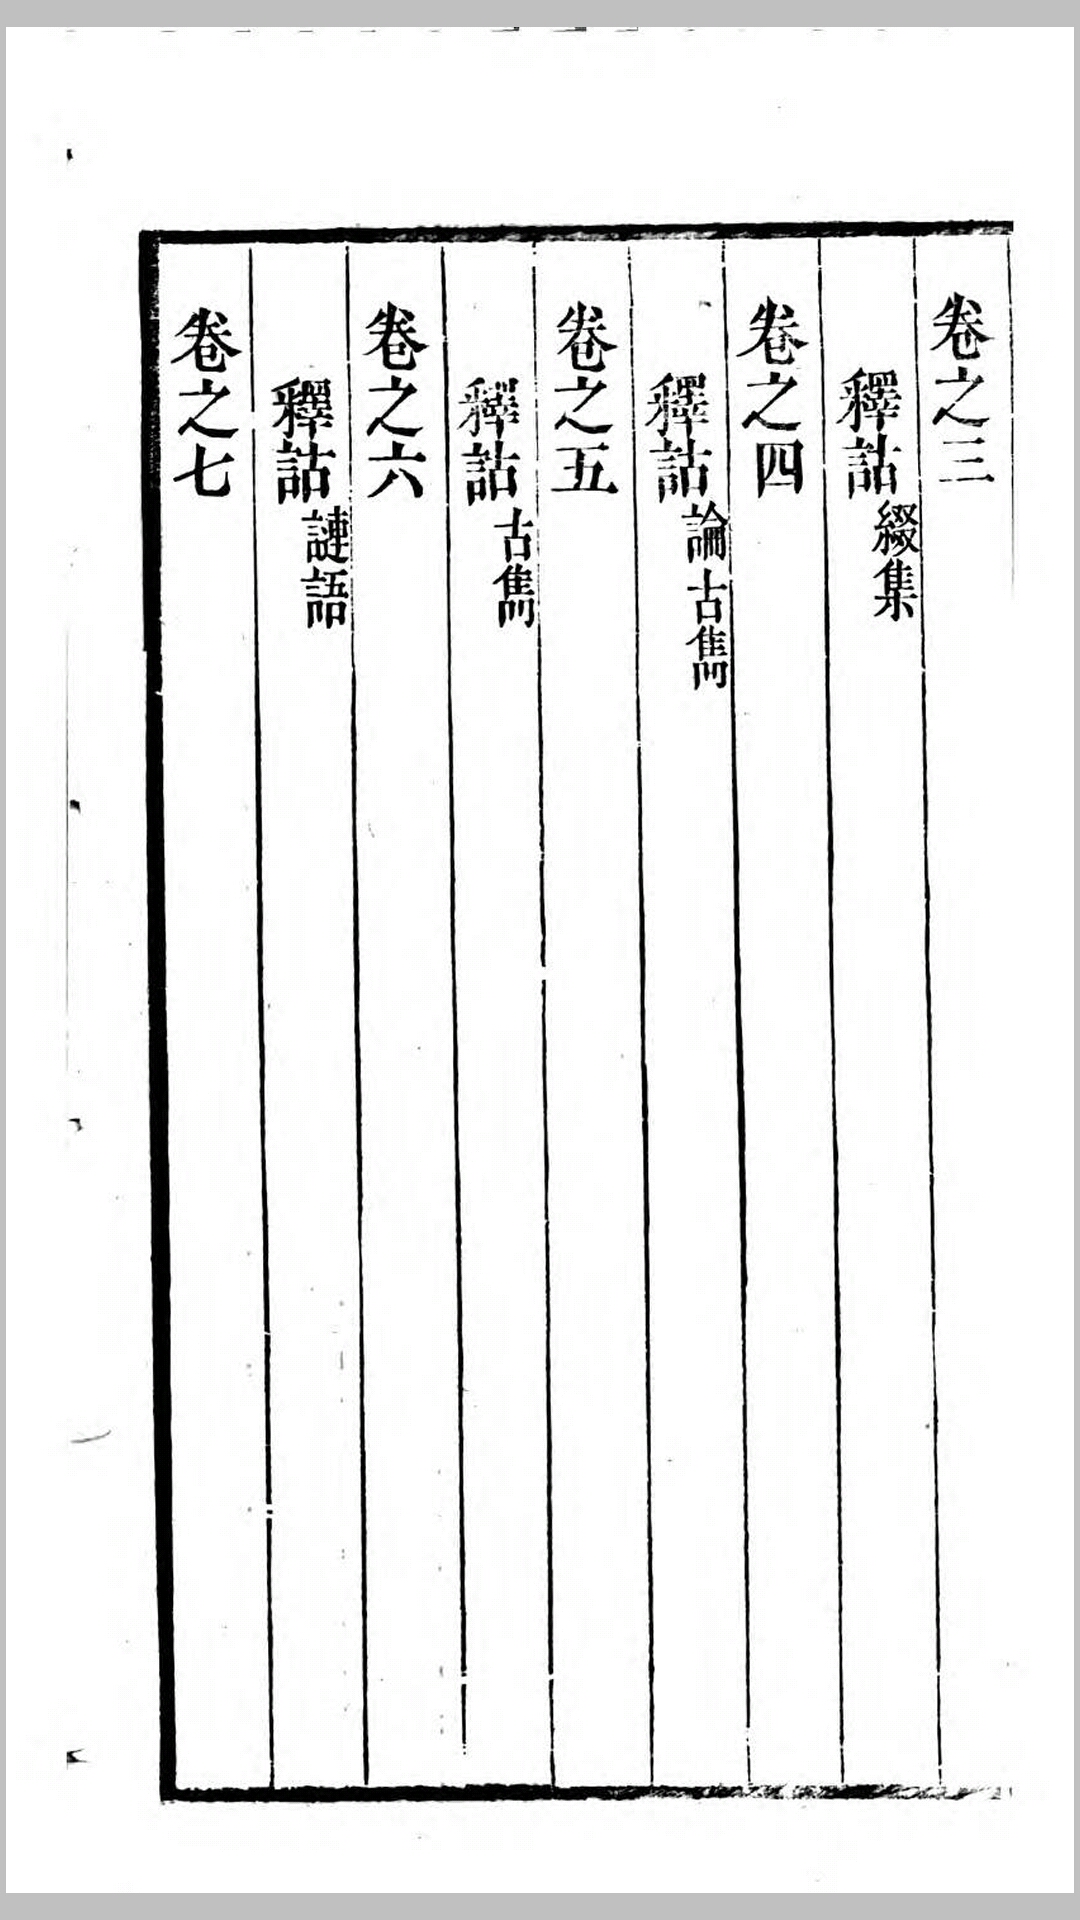 卷之三
釋詁綴集
卷之四
釋詁論古雋
卷之五
釋詁古雋
卷之六
釋詁謰語
卷之七